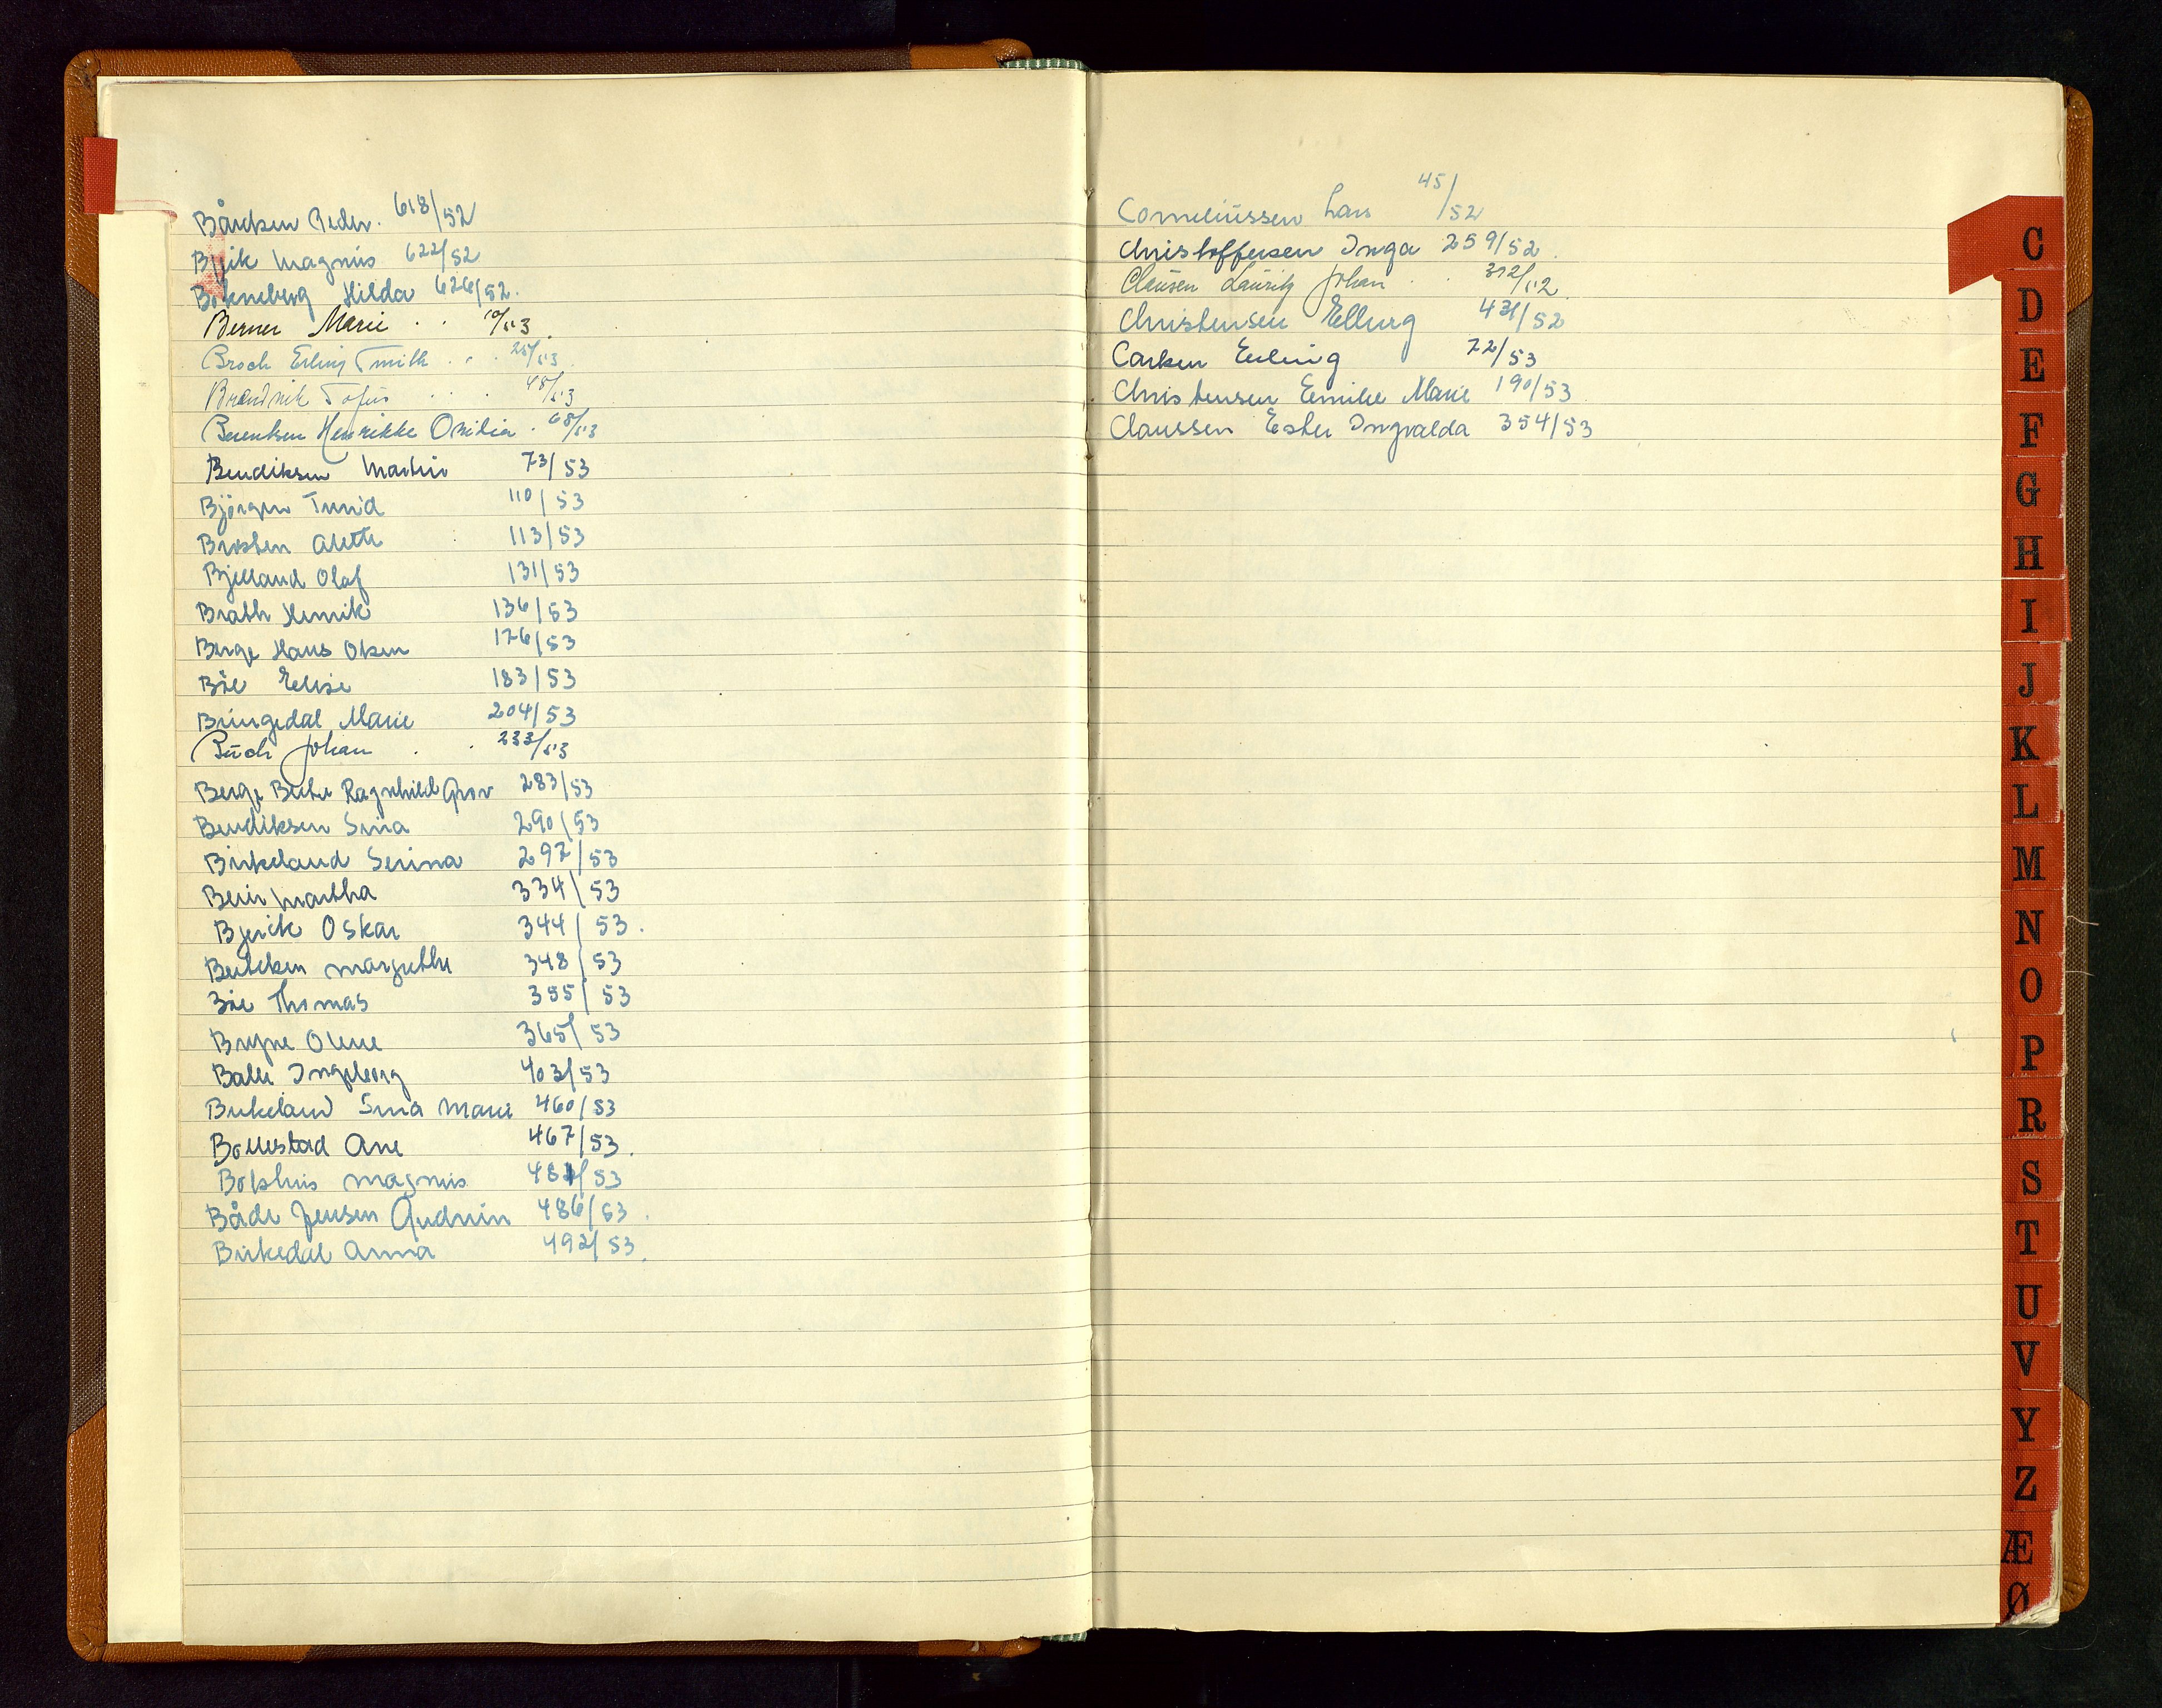 Bårdsen Peder. 618/52
Magnus 622/52
Bokneberg Hilda 626/52.
Berner Marie . . 10/53.
Broch Erling Smith . . . 25/53.
Tofus . . . 48/53
Berentsen Henrikke Otilia . 68/53
Bendiksen Martin 73/53
Björgen Turid 110/53
Brosten Alette : 113/53
Bjelland Olaf 131/53
Bratth Henrik 136/53
Berge Hans Olsen 176/53
Böe Elise 183/53
Bringedal Marie 204/53
Buch Johan . . 233/53
Berge Berte Ragnhild Grov 283/53
Bendiksen Sina 290/53
Birkeland Serina 297/53
Martha 334/53
Oskar 344/53.
348/53
Böe Thomas 355/53
Bryne Olene 365/53
Balle Ingeborg 403/53
Birkeland Sina Marie 460/53
Bollestad Ane 467/53.
Bokshus Magnus 53
Både Jensen Gudrun 486/53.
Birkedal Anna 492/53.
Corneliussen Lars 45/52
Christoffersen Inga 259/52.
Clausen Lauritz Johan . . 312/52
Christensen Ellburg 431/52
Carlsen Erling 72/53
Christensen Emilie Marie 190/53
Claussen Ester Ingvalda 354/53
C
D
E
F
G
H
I
J
K
L
M
N
O
P
R
S
T
U
V
Y
Z
Æ
Ø